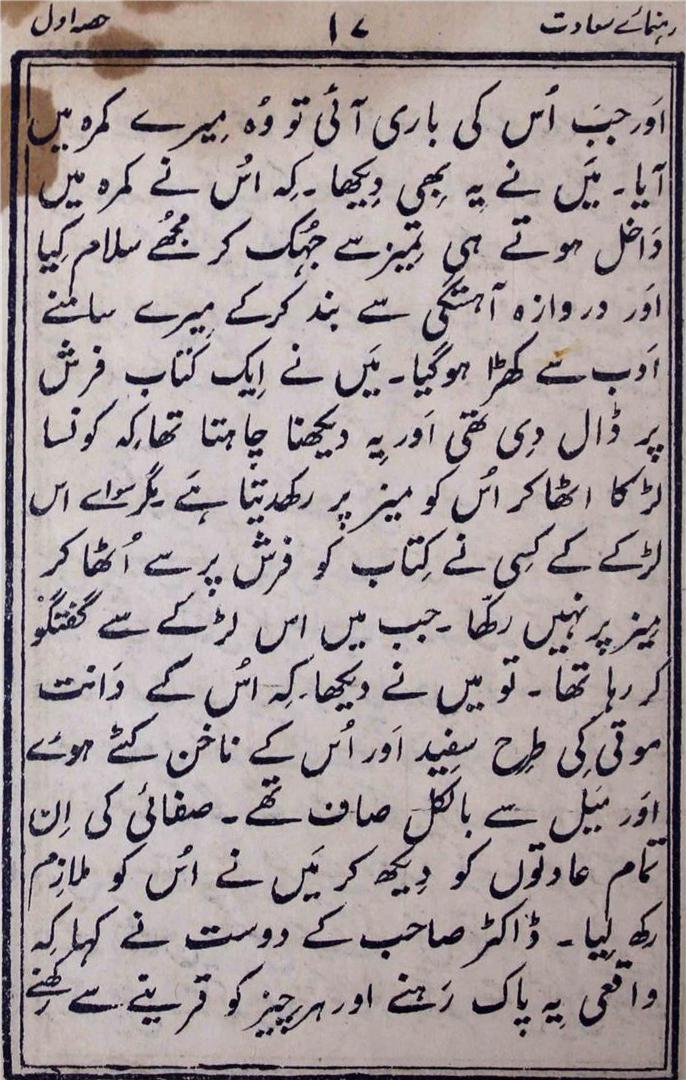 رہنمائے سعادت ۱۷ حصہ اول
اَور جب اُس کی باری آئی تو وُہ مِیرے کمرہ میں
آیا۔ مَیں نے یہ بِھی دِیکھا۔ کِہ اسُ نے کمرہ میں
دَاخل ہوتے ہی تمِیز سے جُہک کر مجُھے سلام کِیا
اَور دروازہ آہستگی سے بند کرکے مِیرے سامنے
اَدب سے کھڑا ہوگیا۔ مَیں نے اِیک کتاب فرش
پر ڈال دِی تھی اَور یہ دیکھنا چاہتا تھا کِہ کونسا
لڑکا اٹھا کر اسُ کو میز پر رکھدیتا ہَے۔ مگر سواے اس
لڑکے کے کسِی نے کِتاب کو فرش پر سے اُٹھا کر
مِیز پر نہیں رکھّا۔ جب میں اس لڑکے سے گفتگو
کر رہا تھا۔ تو میں نے دیکھا۔ کِہ اسُ کے دَانت
موتی کِی طرح سفِید اَور اُس کے ناخن کٹے ہوئے
اَور مَیل سے بالکل صاف تھے۔ صفائی کی اِن
تمام عادتوں کو دِیکھ کر مَیں نے اسُ کو ملازِم
رکھ لِیا۔ ڈاکٹر صاحب کے دوست نے کہا کِہ
واقعی یِہ پاک رَہنے اور ہر چیز کو قرینے سے رکھنے